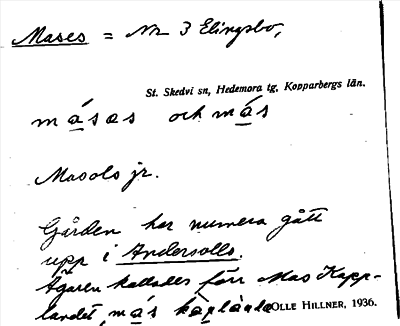 Mases = Nr 3 Elingsbo,
St. Skedvi sn, Hedemora tg, Kopparbergs län.
má̱sas och má̱s
Masols jr.
Gården har numera gått
upp i Andersolls.
Ägaren kallades förr Mas Kapp-
landet, má̱s
OLLE HILLNER, 1936.